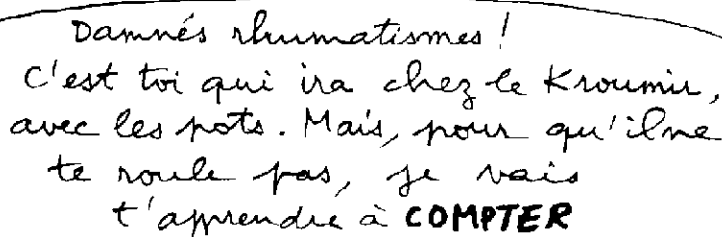 Damnés rhumatismes !
C'est toi qui ira chez le Kroumir,
avec les pots. Mais, pour qu'il ne
te roule pas, je vais
t'apprendre à COMPTER